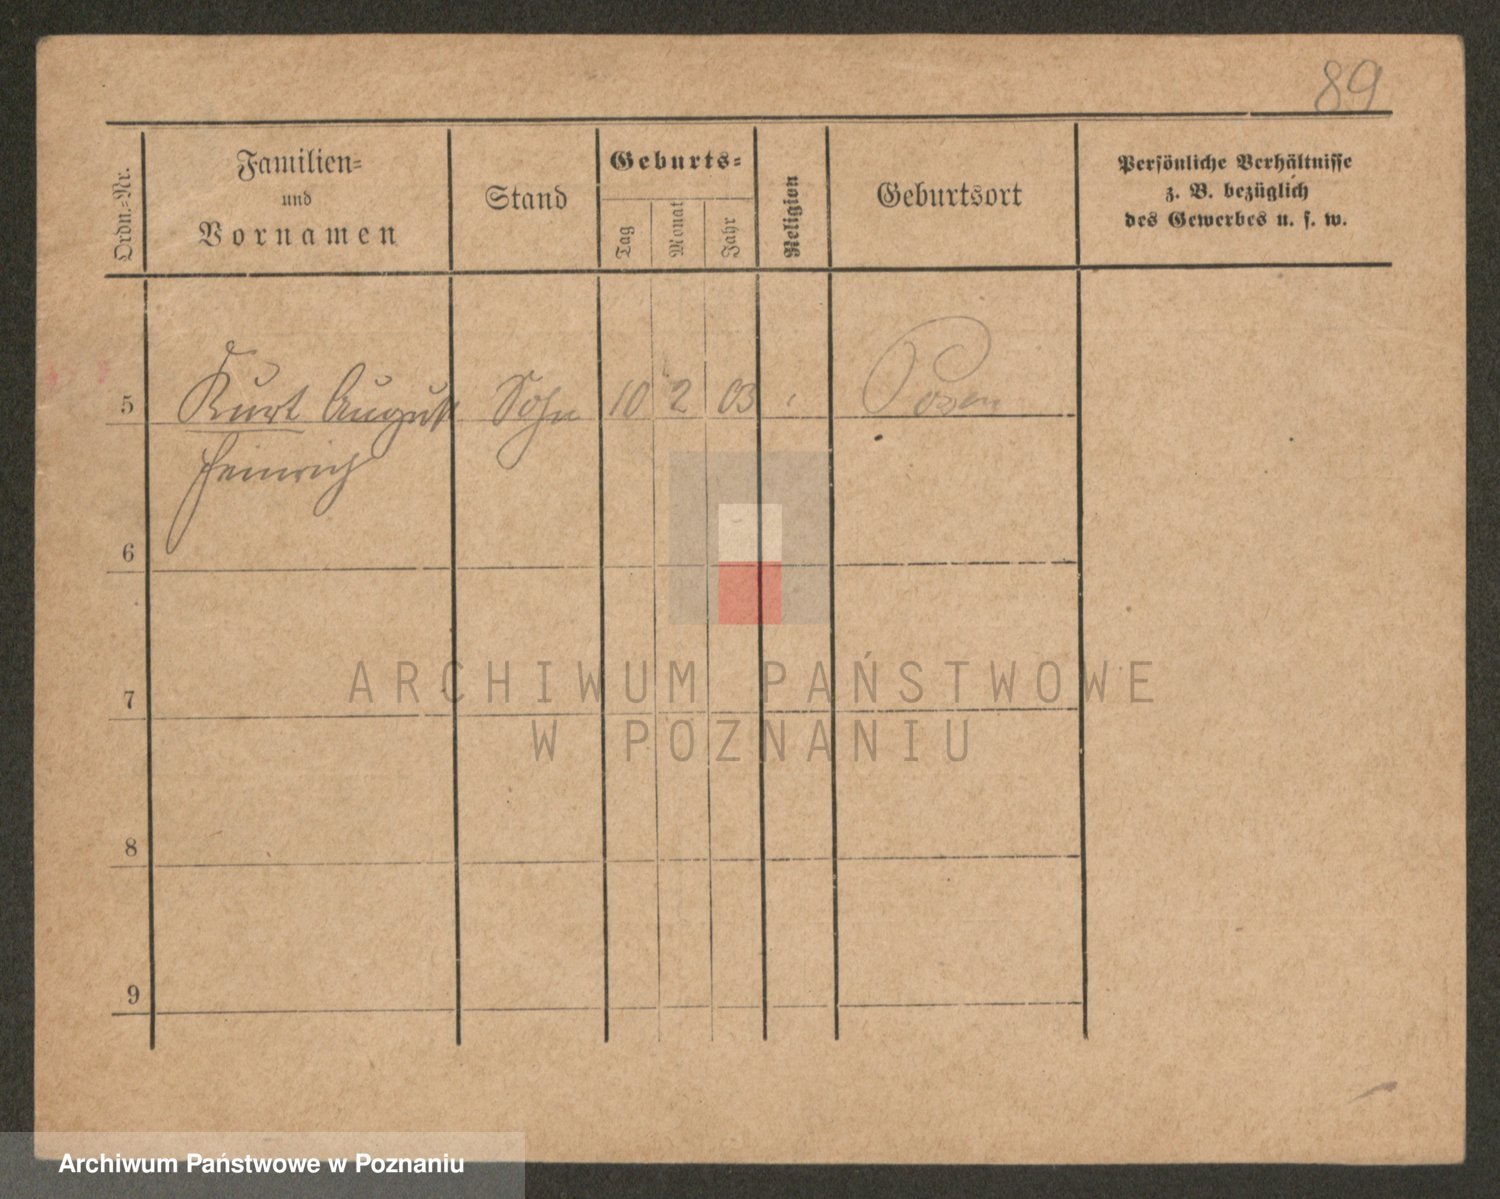 89
Ordn.-Nr.
Familien-
und
Vornamen
Stand
Geburts-
Tag
Monat
Jahr
Religion
Geburtsort
Persönliche Verhältnisse
z. B. bezüglich
des Gewerbes u. s. w.
5 Kurt August Sohn 10 2 03 Posen
Heinrich
6
7
8
9
ARCHIWUM PAŃSTWOWE
W POZNANIU
Archiwum Państwowe w Poznaniu